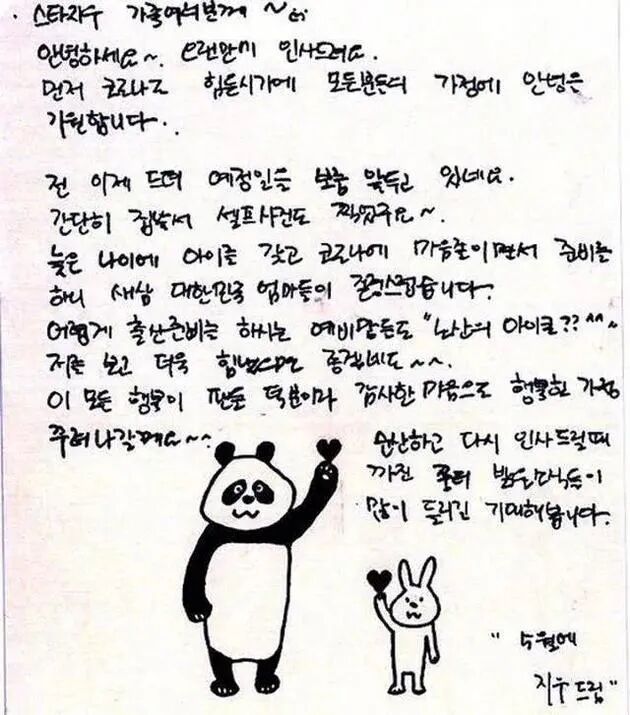 스타지우 가족여러분께 ~
안녕하세요~. 오랜만에 인사드려요.
먼저 코로나로 힘든시기에 모든분들의 가정에 안녕을
기원합니다..
전 이제 드뎌 예정일을 보름 앞두고 있네요.
간단히 집에서 셀프사진도 찍었구요~.
늦은 나이에 아이를 갖고 코로나에 마음졸이면서 준비를
하니 새삼 대한민국 엄마들이 존경스럽습니다.
어렵게 출산준비는 하시는 예비맘들도 "노산의 아이콘?? ^^~
저를 보고 더욱 힘냈으면 좋겠네요~~.
이 모든 행복이 팬들 덕분이라 감사한 마음으로 행복한 가정
꾸려나갈께요~~
순산하고 다시 인사드릴때
까진 좀더 밝은소식들이
많이 들리길 기대해봅니다.
" 5월에
지우드림 "